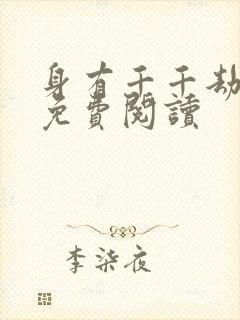 身有千千劫
免費閱讀
李柒夜